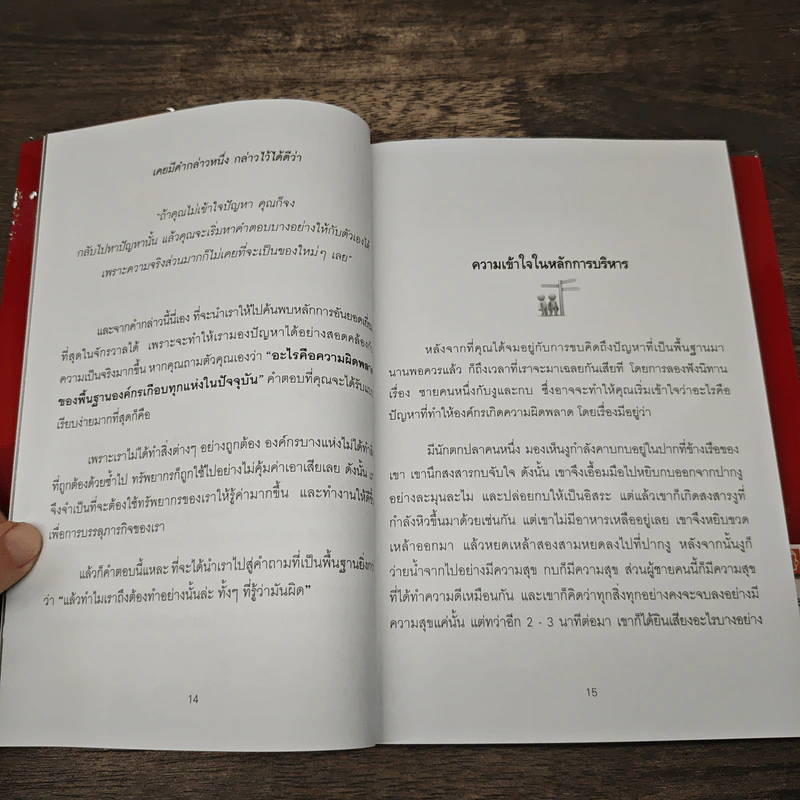 เคยมีคำกล่าวหนึ่ง กล่าวไว้ได้ดีว่า
"ถ้าคุณไม่เข้าใจปัญหา คุณก็จง
กลับไปหาปัญหานั้น แล้วคุณจะเริ่มหาคำตอบบางอย่างให้กับตัวเองได้
เพราะความจริงส่วนมากก็ไม่เคยที่จะเป็นของใหม่ๆ เลย"
และจากคำกล่าวนี้นี่เอง ที่จะนำเราให้ไปค้นพบหลักการอันยอดเยี่ยม
ที่สุดในจักรวาลได้ เพราะจะทำให้เรามองปัญหาได้อย่างสอดคล้อง
ความเป็นจริงมากขึ้น หากคุณถามตัวคุณเองว่า "อะไรคือความผิดพลาด
ของพื้นฐานองค์กรเกือบทุกแห่งในปัจจุบัน" คำตอบที่คุณจะได้รับ
เรียบง่ายมากที่สุดก็คือ
เพราะเราไม่ได้ทำสิ่งต่างๆ อย่างถูกต้อง องค์กรบางแห่งไม่ได้ทำ
ที่ถูกต้องด้วยซ้ำไป ทรัพยากรก็ถูกใช้ไปอย่างไม่คุ้มค่าเอาเสียเลย ดังนั้น
จึงจำเป็นที่จะต้องใช้ทรัพยากรของเราให้รู้ค่ามากขึ้น และทำงานให้ดี
เพื่อการบรรลุภารกิจของเรา
แล้วก็คำตอบนี้แหละ ที่จะได้นำเราไปสู่คำถามที่เป็นพื้นฐานยิ่ง
ว่า "แล้วทำไมเราถึงต้องทำอย่างนั้นล่ะ ทั้งๆ ที่รู้ว่ามันผิด"
14
ความเข้าใจในหลักการบริหาร
หลังจากที่คุณได้จมอยู่กับการขบคิดถึงปัญหาที่เป็นพื้นฐานมา
นานพอควรแล้ว ก็ถึงเวลาที่เราจะมาเฉลยกันเสียที โดยการลองฟังนิทาน
เรื่อง ชายคนหนึ่งกับงูและกบ ซึ่งอาจจะทำให้คุณเริ่มเข้าใจว่าอะไรคือ
ปัญหาที่ทำให้องค์กรเกิดความผิดพลาด โดยเรื่องมีอยู่ว่า
มีนักตกปลาคนหนึ่ง มองเห็นงูกำลังคาบกบอยู่ในปากที่ข้างเรือของ
เขา เขานึกสงสารกบจับใจ ดังนั้น เขาจึงเอื้อมมือไปหยิบกบออกจากปากงู
อย่างละมุนละไม และปล่อยกบให้เป็นอิสระ แต่แล้วเขาก็เกิดสงสารงูที่
กำลังหิวขึ้นมาด้วยเช่นกัน แต่เขาไม่มีอาหารเหลืออยู่เลย เขาจึงหยิบขวด
เหล้าออกมา แล้วหยดเหล้าสองสามหยดลงไปที่ปากงู หลังจากนั้นงูก็
ว่ายน้ำจากไปอย่างมีความสุข กบก็มีความสุข ส่วนผู้ชายคนนี้ก็มีความสุข
ที่ได้ทำความดีเหมือนกัน และเขาก็คิดว่าทุกสิ่งทุกอย่างคงจะจบลงอย่างมี
ความสุขแค่นั้น แต่ทว่าอีก 2 - 3 นาทีต่อมา เขาก็ได้ยินเสียงอะไรบางอย่าง
15